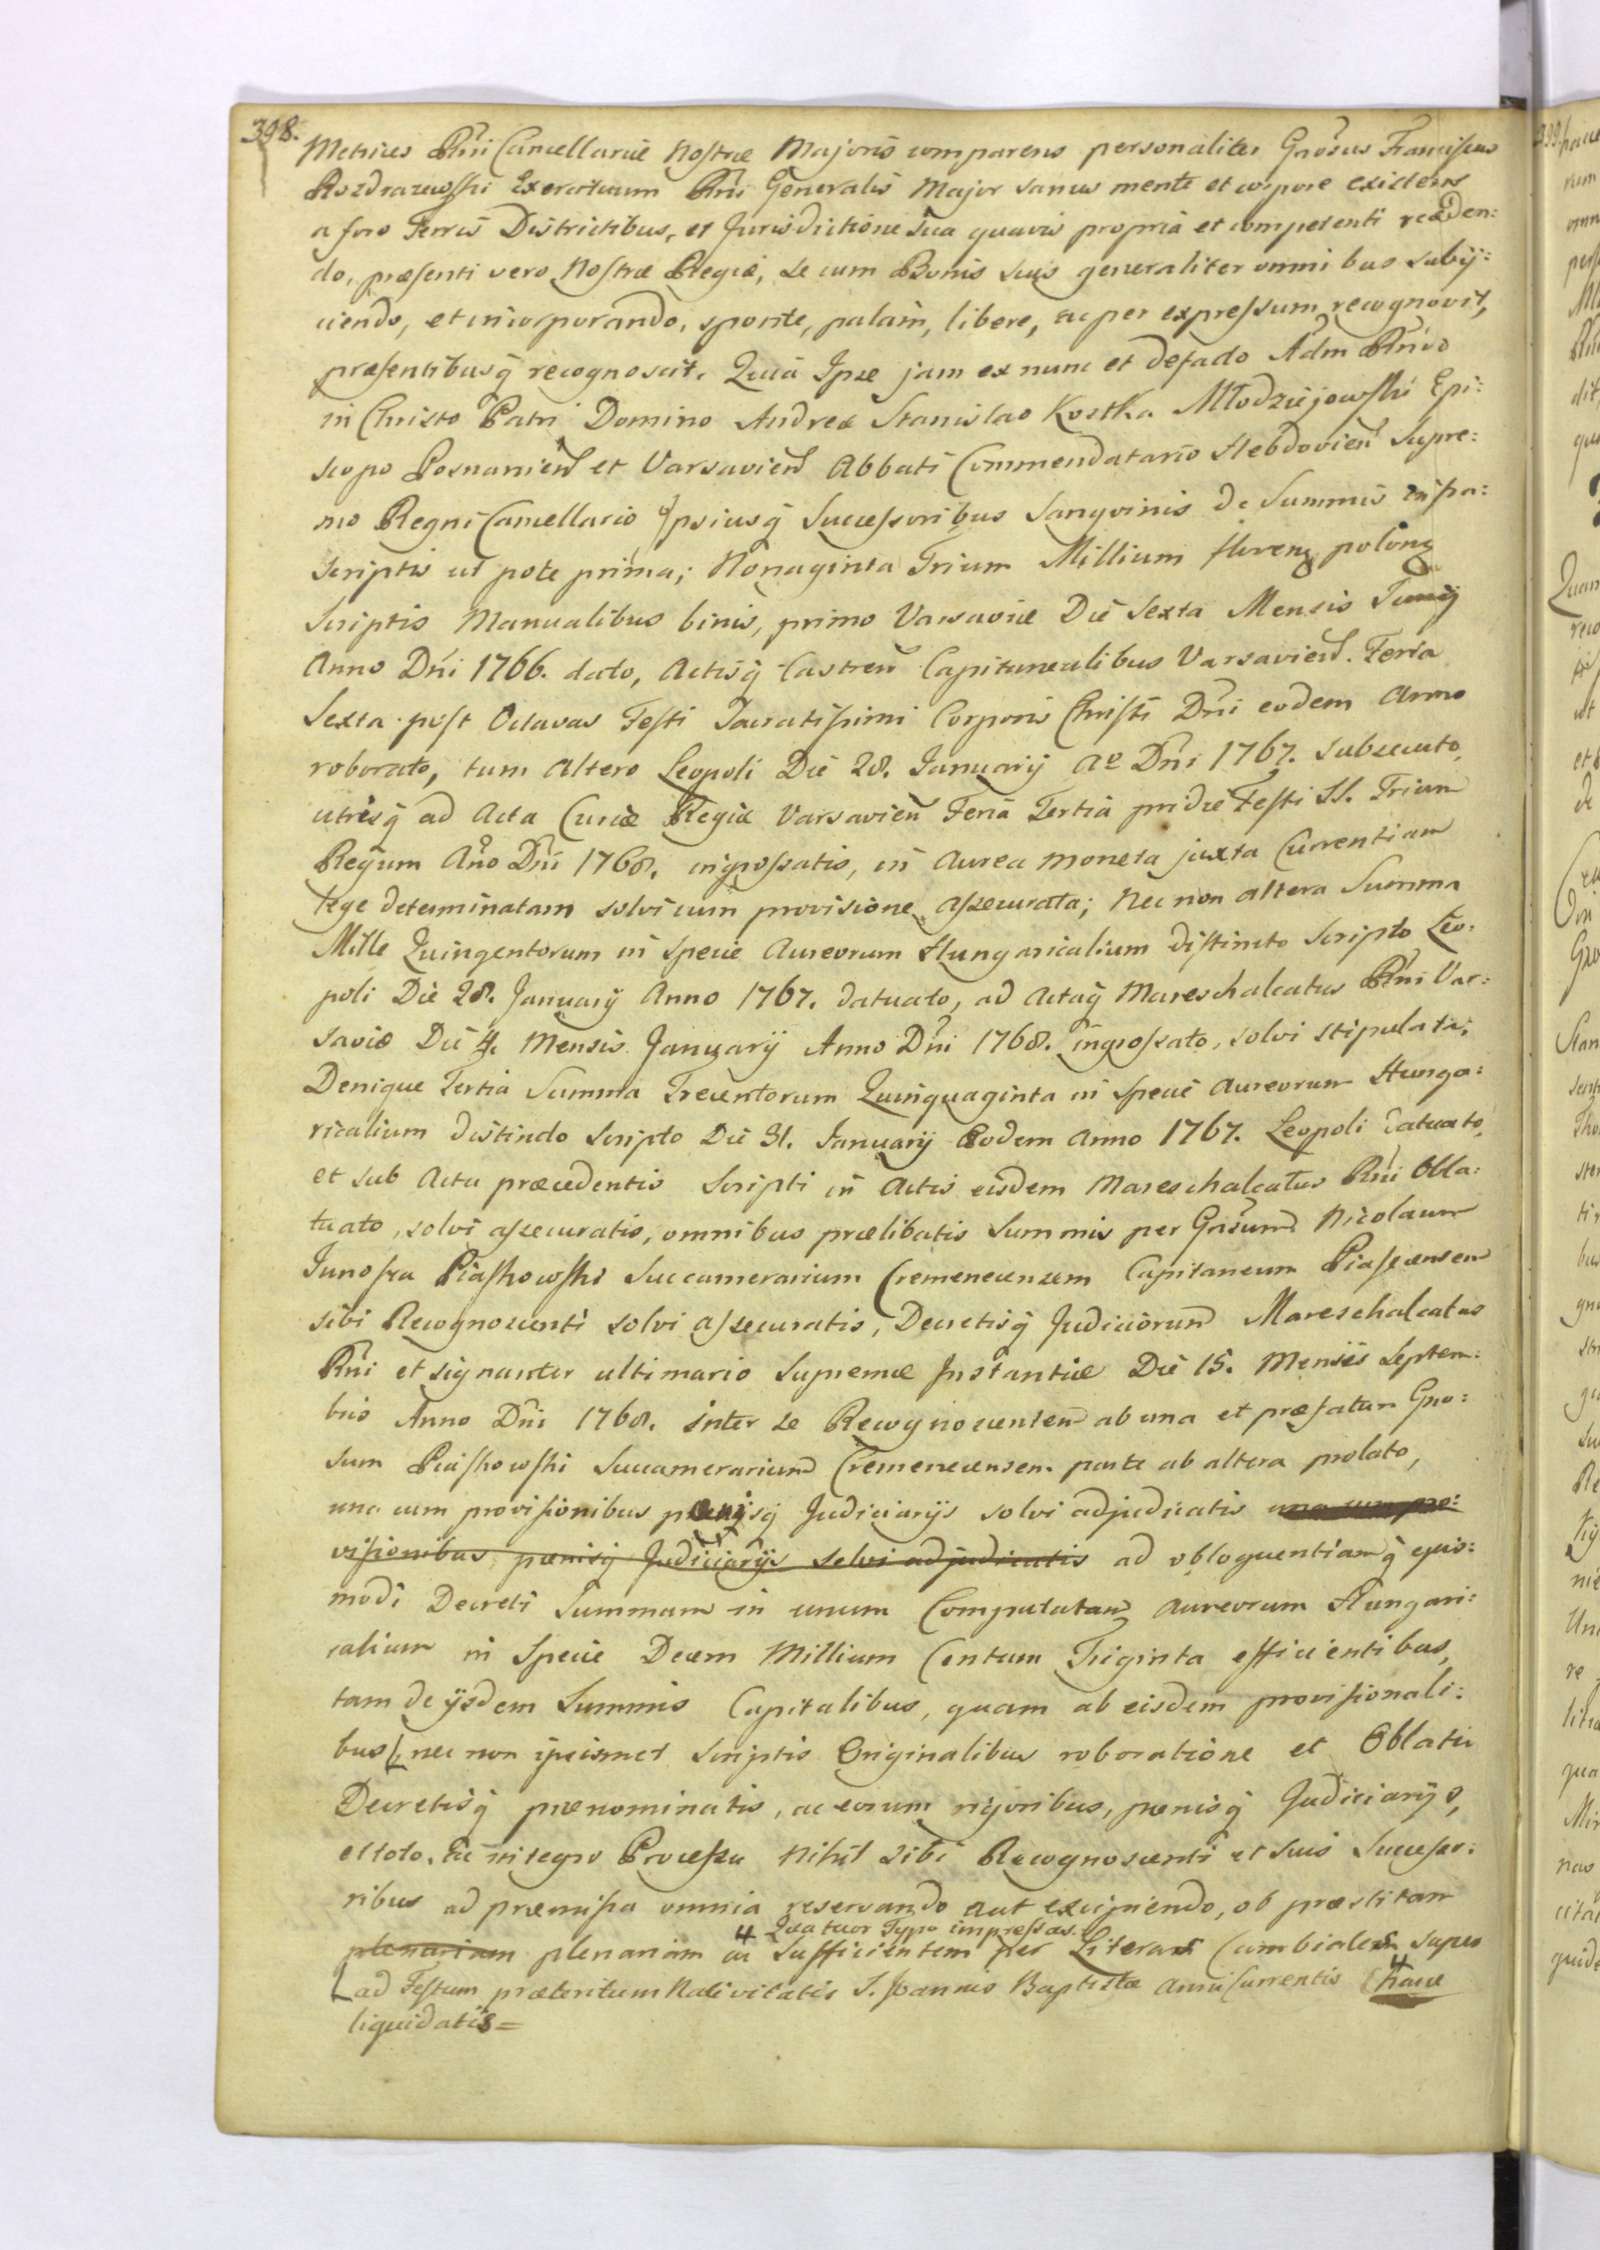 398.
Metrices Rni Cancellariæ Nostræ Majoris comparens personaliter Gnosus Franciscus
Rozdrazewski Exercituum Rni Generalis Major sanus mente et corpore existens
a foro Terris Districtibus, et Jurisdictione sua quavis propria et competenti receden:
do, præsenti vero Nostræ Regiæ, se cum Bonis suis generaliter omnibus subij:
ciendo, et incorporando, sponte, palam, libere, ac per expressum recognovit,
præsentibusq recognoscit. Quia Ipse jam ex nunc et defacto Adm Rndo
in Christo Patri Domino Andreæ Stanislao Kostka Młodziejowski Epi:
scopo Posnanien et Varsavien Abbati Commendatario Hebdovien Supre:
mo Regni Cancellario Ipsiusq Successoribus Sangvinis de Summis infra:
scriptis ut pote prima; Nonaginta Trium Millium floreny polony
Scriptis Manualibus binis, primo Varsaviæ Die Sexta Mensis Junij
Anno Dni 1766. dato, Actisq Castren Capitunealibus Varsavien. Feria
Sexta post Octavas Festi Sacratissimi Corporis Christi Dni eodem Anno
roborato, tum altero Leopoli Die 28. January Ao Dni 1767. subsecuto,
utrisq ad Acta Curiæ Regiæ Varsavien Feria Tertia pridie Festi SS. Trium
Regum Ano Dni 1768. ingrossatis, in Aurea moneta juxta Currentiam
lege determinatam solvi cum provisione assecurata; Nec non altera Summa
Mille Quingentorum in specie Aureorum Hungaricalium distincto Scripto Leo:
poli Die 28. January Anno 1767. datuato, ad Actaq Mareschalcatus Rni Var:
saviæ Die 4. Mensis January Anno Dni 1768. ingrossato, solvi stipulata;
Denique Tertia Summa Trecentorum Quinquaginta in specie Aureorum Hunga:
ricalium distincto Scripto Die 31. January Eodem Anno 1767. Leopoli datuato,
et sub Actu præcedentis Scripti in Actis eisdem Mareschalcatus Rni Obla:
tuato, solvi assecuratis, omnibus prælibatis Summis per Gnosum Nicolaum
Junosza Piaskowski Succamerarium Cremenecensem Capitaneum Piasecensem
sibi Recognoscenti solvi assecuratis, Decretisq Judiciorum Mareschalcatus
Rni et signanter ultimario Supremæ Instantiæ Die 15. Mensis Septem:
bris Anno Dni 1768. inter se Recognoscentem ab una et præfatum Gno:
sum Piaskowski Succamerarium Cremenecensem. parte ab altera prolato,
una cum provisionibus pænisq Judiciarijs solvi adjudicatis una cum pro:
visionibus pænisq Judiciarijs solvi adjudicatis ad obloquentiamq ejus:
modi Decreti Summam in unum Computatam Aureorum Hungari:
calium in Specie Decem Millium Centum Triginta efficientibus,
tam de ijsdem Summis Capitalibus, quam ab eisdem provisionali:
bus nec non ipsismet Scriptis Originalibus roboratione et Oblatis
Decretisq prænominatis, ac eorum rigoribus, pænisq Judiciarijs,
et toto in integro Processu Nihil sibi Recognoscenti et suis Successo:
ribus ad præmissa omnia reservando aut excipiendo, ob præstitam
4 Quatuor Typo impressas
plenariam plenariam ac Sufficientem per Literas Cambiales super
ad Festum præteritum Nativitatis S. Joannis Baptistæ Anni Currentis
liquidatis =